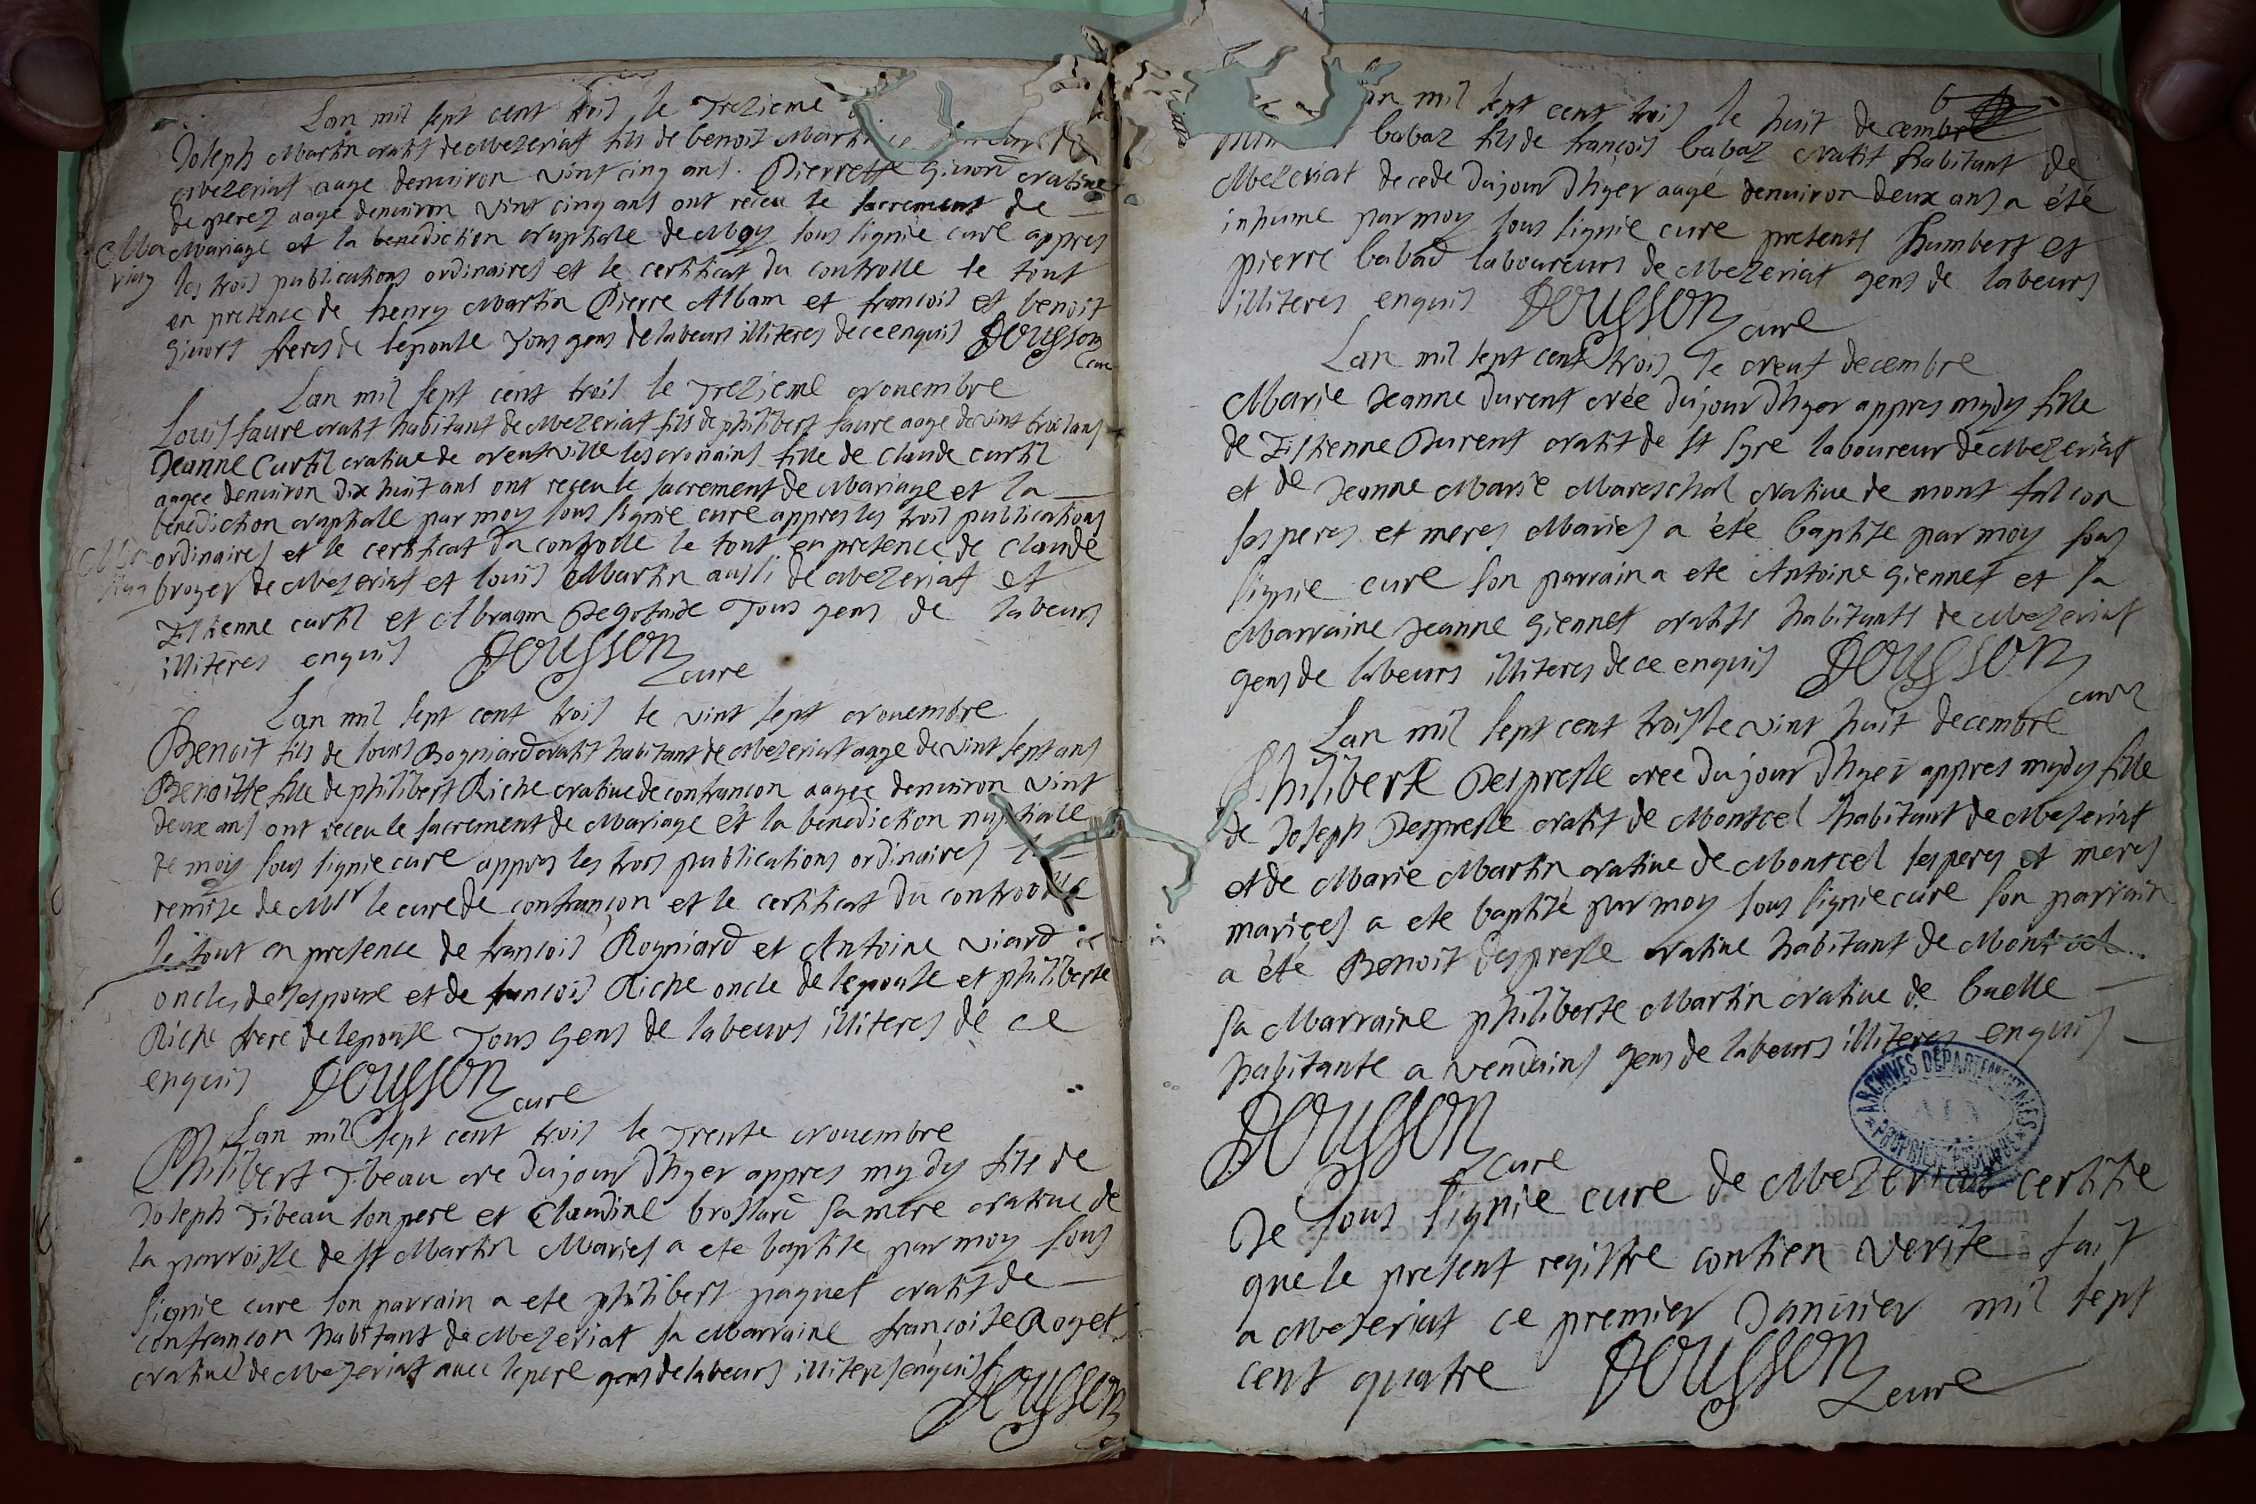 Lan mil sept cent trois le Trezieme
Joseph Martin natif de Mezeriat fils de benoit Martin
Mezeriat aage denuiron vint cinq ans. Pierrette giuord natiue
de perez aage denuiron vint cinq ans ont receu le sacrement de
Mariage et la benediction nuptiale de Moy sous signie curé appres
Ma
riag
les trois publications ordinaires et le certificat du controlle le tout
en presence de henry Martin Pierre Albam et francois et benoit
giuort freres de lepouse Tous gens de labeurs illiteres de ce enquis Dousson
cure
Lan mil sept cent trois le Trezieme nouembre
Louis faure natif habitant de Mezeriat fils de philibert faure aage de vint trois ans
Jeanne Curtil natiue de neufville les nonains fille de claude curtil
aagee denuiron dix huit ans ont receu le sacrement de Mariage et la
benediction nuptiale par moy sous signie cure appres les trois publications
ordinaires et le certificat du controlle le tout en presence de claude
Ma
riag
broyer de Mezeriat et louis Martin aussi de Mezeriat et
Estienne curtil et Abraam Tous gens de labeurs
illiteres enquis Dousson
cure
Lan mil sept cent trois le vint sept nouembre
Benoit fils de louis Rogniard natif habitant de Mezeriat aage de vint sept ans
Benoitte fille de philibert Riche natiue de confrancon aagee denuiron vint
deux ans ont receu le sacrement de Mariage et la benediction nuptialle
de moy sous signie cure appres les trois publications ordinaires la
remise de Mr le cure de confrançon et le certificat du controolle
le tout en presence de francois Rogniard et Antoine viard
oncles de lespoux et de francois Riche oncle de lepouse et philiberte
Riche frere de lepouse Tous gens de labeurs illiteres de ce
enquis Dousson
cure
Lan mil sept cent trois le Trente nouembre
Philibert Tibeau ne du jour dhyer appres mydy fils de
Joseph Tibeau son pere et Claudine brossard sa mere natiue de
la parroisse de st Martin Maries a ete baptise par moy sous
signie cure son parrain a ete philibert paquet natif de
confrancon habitant de Mezeriat sa Marraine françoise Royet
natiue de Mezeriat auec lepere gens de labeurs illiteres enquis
Dousson
6
Lan mil sept cent trois le huit decembre
babaz fils de françois babaz natif habitant de
Mezeriat decede du jour dhyer aagé denuiron deux ans a été
inhume par moy sous signie cure presents humbert et
pierre babad laboureurs de Mezeriat gens de labeurs
illiteres enquis Dousson
cure
Lan mil sept cent trois le neuf decembre
Marie Jeanne durent née du jour dhyer appres mydy fille
de Estienne Durent natif de st Syre laboureur de Mezeriat
et de Jeanne Marie Mareschal natiue de mont falcon
ses peres et meres Maries a été baptise par moy sous
signie cure son parrain a ete Antoine giennet et sa
Marraine Jeanne giennet natifs habitants de Mezeriat
gens de labeurs illiteres de ce enquis Dousson
cure
Lan mil sept cent trois le vint huit decembre
Philiberte Despresle nee du jour dhyer appres mydy fille
de Joseph Despresle natif de Montcel habitant de Mezeriat
et de Marie Martin natiue de Montcel ses peres et meres
mariees a ete baptisé par moy sous signie cure son parrain
a été Benoit despresle natiue habitant de Montcel
sa Marraine philiberte Martin natiue de buelle
habitante a vendains gens de labeurs illiteres enquis
Dousson
cure
ARCHIVES DÉPARTEMENTALES
AIN
PROPRIÉTÉ PUBLIQUE
Je sous signie cure de Mezeriat certifie
que le present registre contien verite fait
a Mezeriat ce premier Januier mil sept
cent quatre Dousson
cure